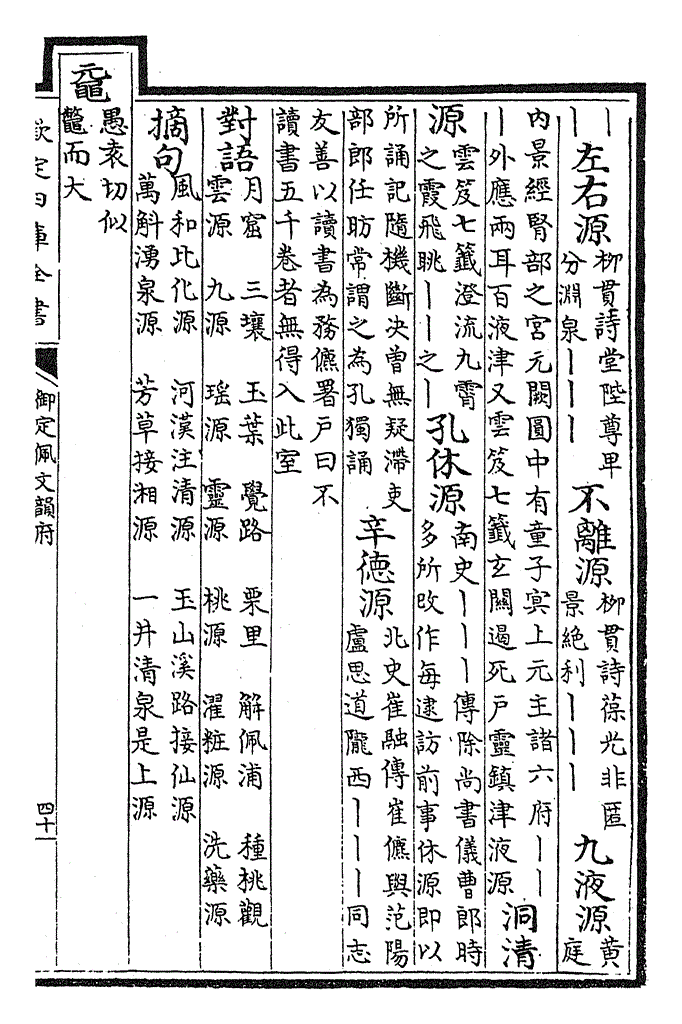 ｜
｜
左右源
柳貫詩堂陛尊卑
分淵泉｜｜｜
不離源
柳貫詩葆光非匿
景絶利｜｜｜
九液源
黄
庭
内景經腎部之宫元闕圓中有童子冥上元主諸六府｜｜
｜外應兩耳百液津又雲笈七籖玄闗遏死戸靈鎮津液源
洞清
源
雲笈七籖澄流九霄
之霞飛眺｜｜之｜
孔休源
南史｜｜｜傳除尚書儀曹郎時
多所改作每逮訪前事休源即以
所誦記隨機斷决曽無疑滯吏
部郎任昉常謂之為孔獨誦
辛徳源
北史崔融傳崔儦與范陽
盧思道隴西｜｜｜同志
友善以讀書為務儦署戸曰不
讀書五千卷者無得入此室
對語
月窟 三壤 玉葉 覺路 栗里 解佩浦 種桃觀
雲源 九源 瑶源 靈源 桃源 濯粧源 洗藥源
摘句
風和比化源 河漢注清源 玉山溪路接仙源
萬斛湧泉源 芳草接湘源 一井清泉是上源
黿
愚袁切似
鼈而大
欽定四庫全書
御定佩文韻府
四十